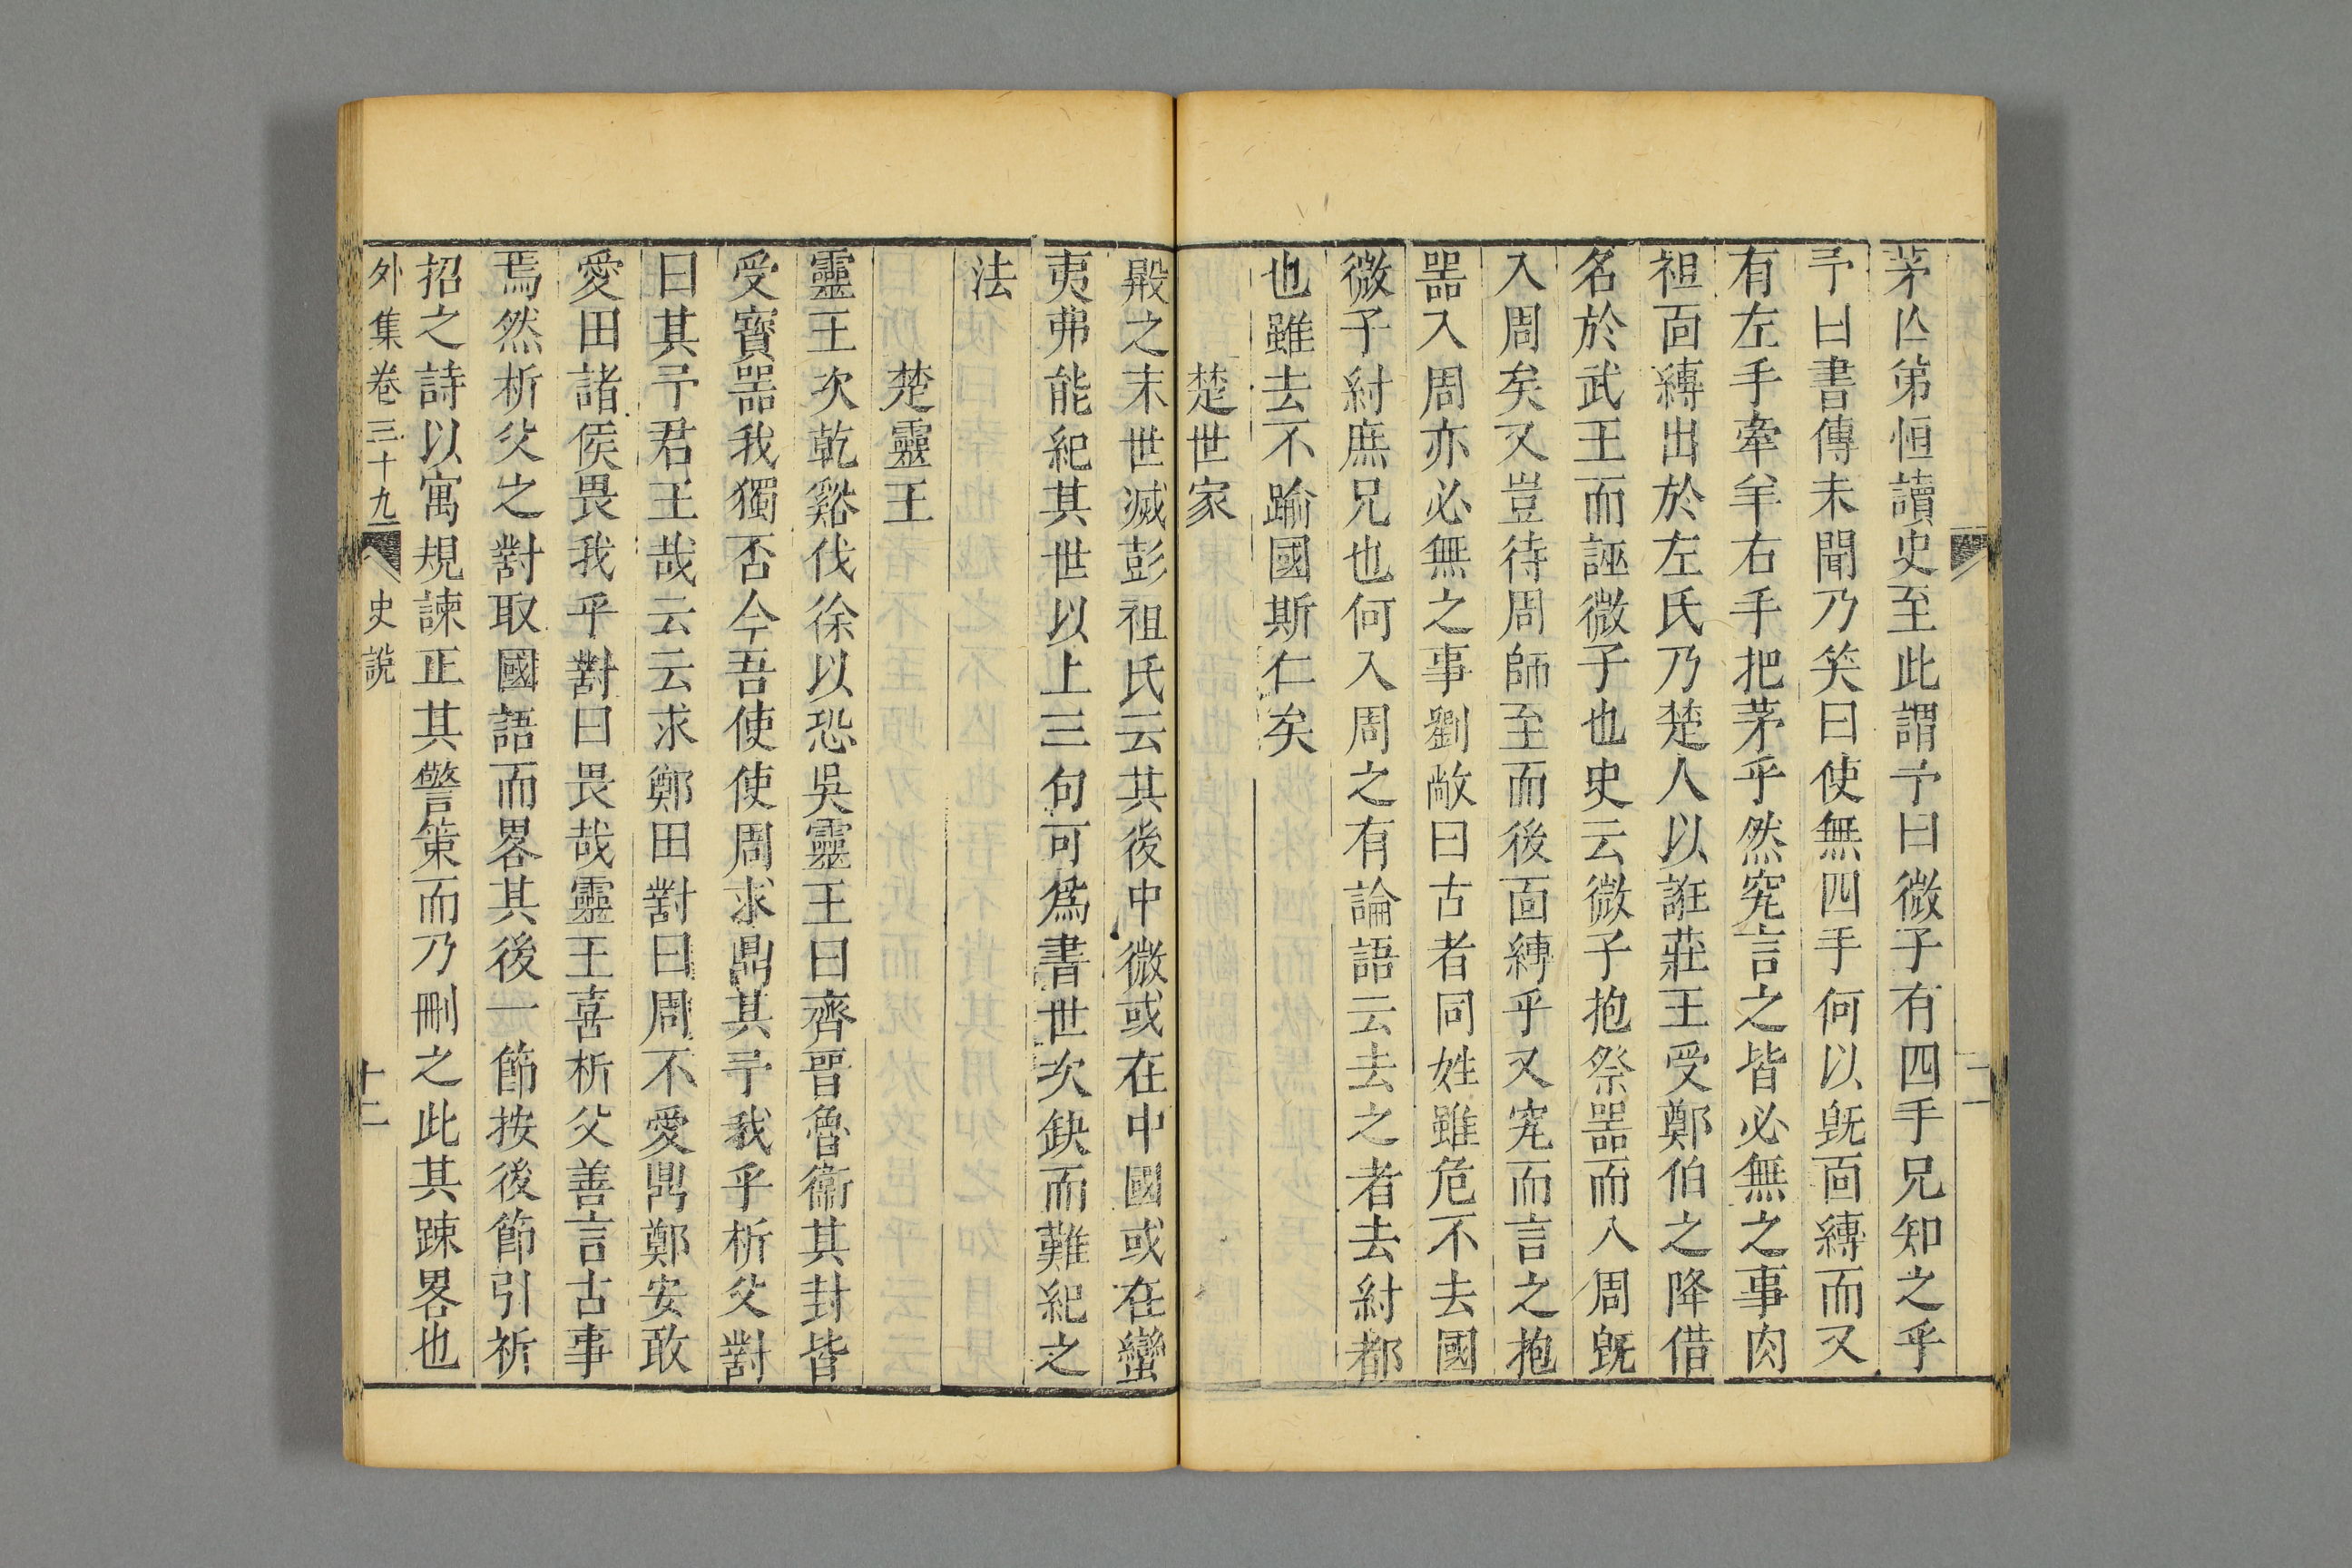 茅亾弟恒讀史至此謂予曰微子有四手兄知之乎
予曰書傳未聞乃笑曰使無四手何以旣面縛而又
有左手牽羊右手把茅乎然究言之皆必無之事肉
袒面縛出於左氏乃楚人以誑莊王受鄭伯之降借
名於武王而誣微子也史云微子抱祭噐而入周旣
入周矣又豈待周師至而後面縛乎又究而言之抱
噐入周亦必無之事劉敞曰古者同姓雖危不去國
微子紂庶兄也何入周之有論語云去之者去紂都
也雖去不踰國斯仁矣
楚世家
殷之末世滅彭祖氏云其後中微或在中國或在蠻
夷弗能紀其世以上三句可爲書世次缺而難紀之
法
楚靈王
靈王次乾谿伐徐以恐吳靈王曰齊晋魯衞其封皆
受寳噐我獨否今吾使使周求鼎其予我乎析父對
曰其予君王哉云云求鄭田對曰周不愛鼎鄭安敢
愛田諸侯畏我乎對曰畏哉靈王喜析父善言古事
焉然析父之對取國語而畧其後一節按後節引祈
招之詩以寓規諫正其警策而乃刪之此其踈畧也
外集卷三十九 史說 十二